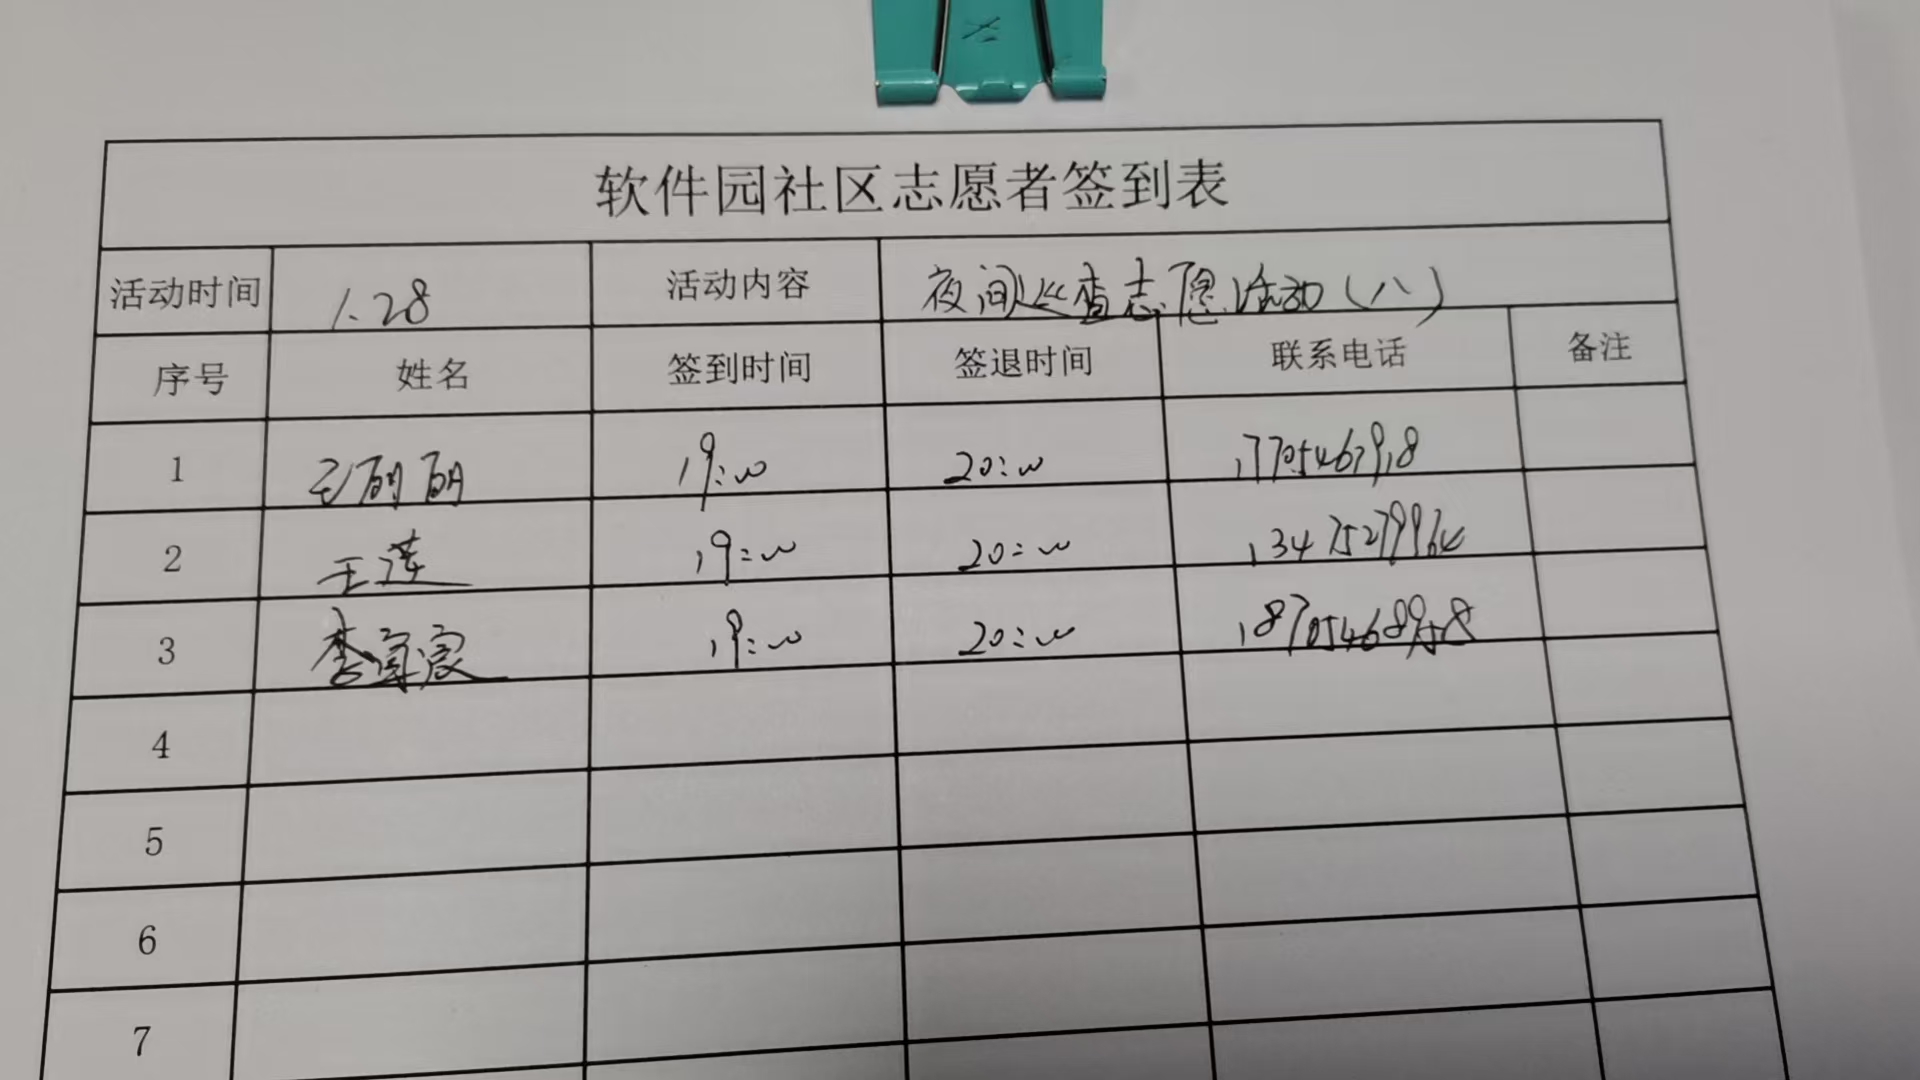 软件园社区志愿者签到表
活动时间 1.28 活动内容 夜间巡查志愿活动(八)
序号 姓名 签到时间 签退时间 联系电话 备注
1 王丽丽 19:00 20:00
2 王莲 19:00 20:00 13475279964
3 李 19:00 20:00 18705468958
4
5
6
7